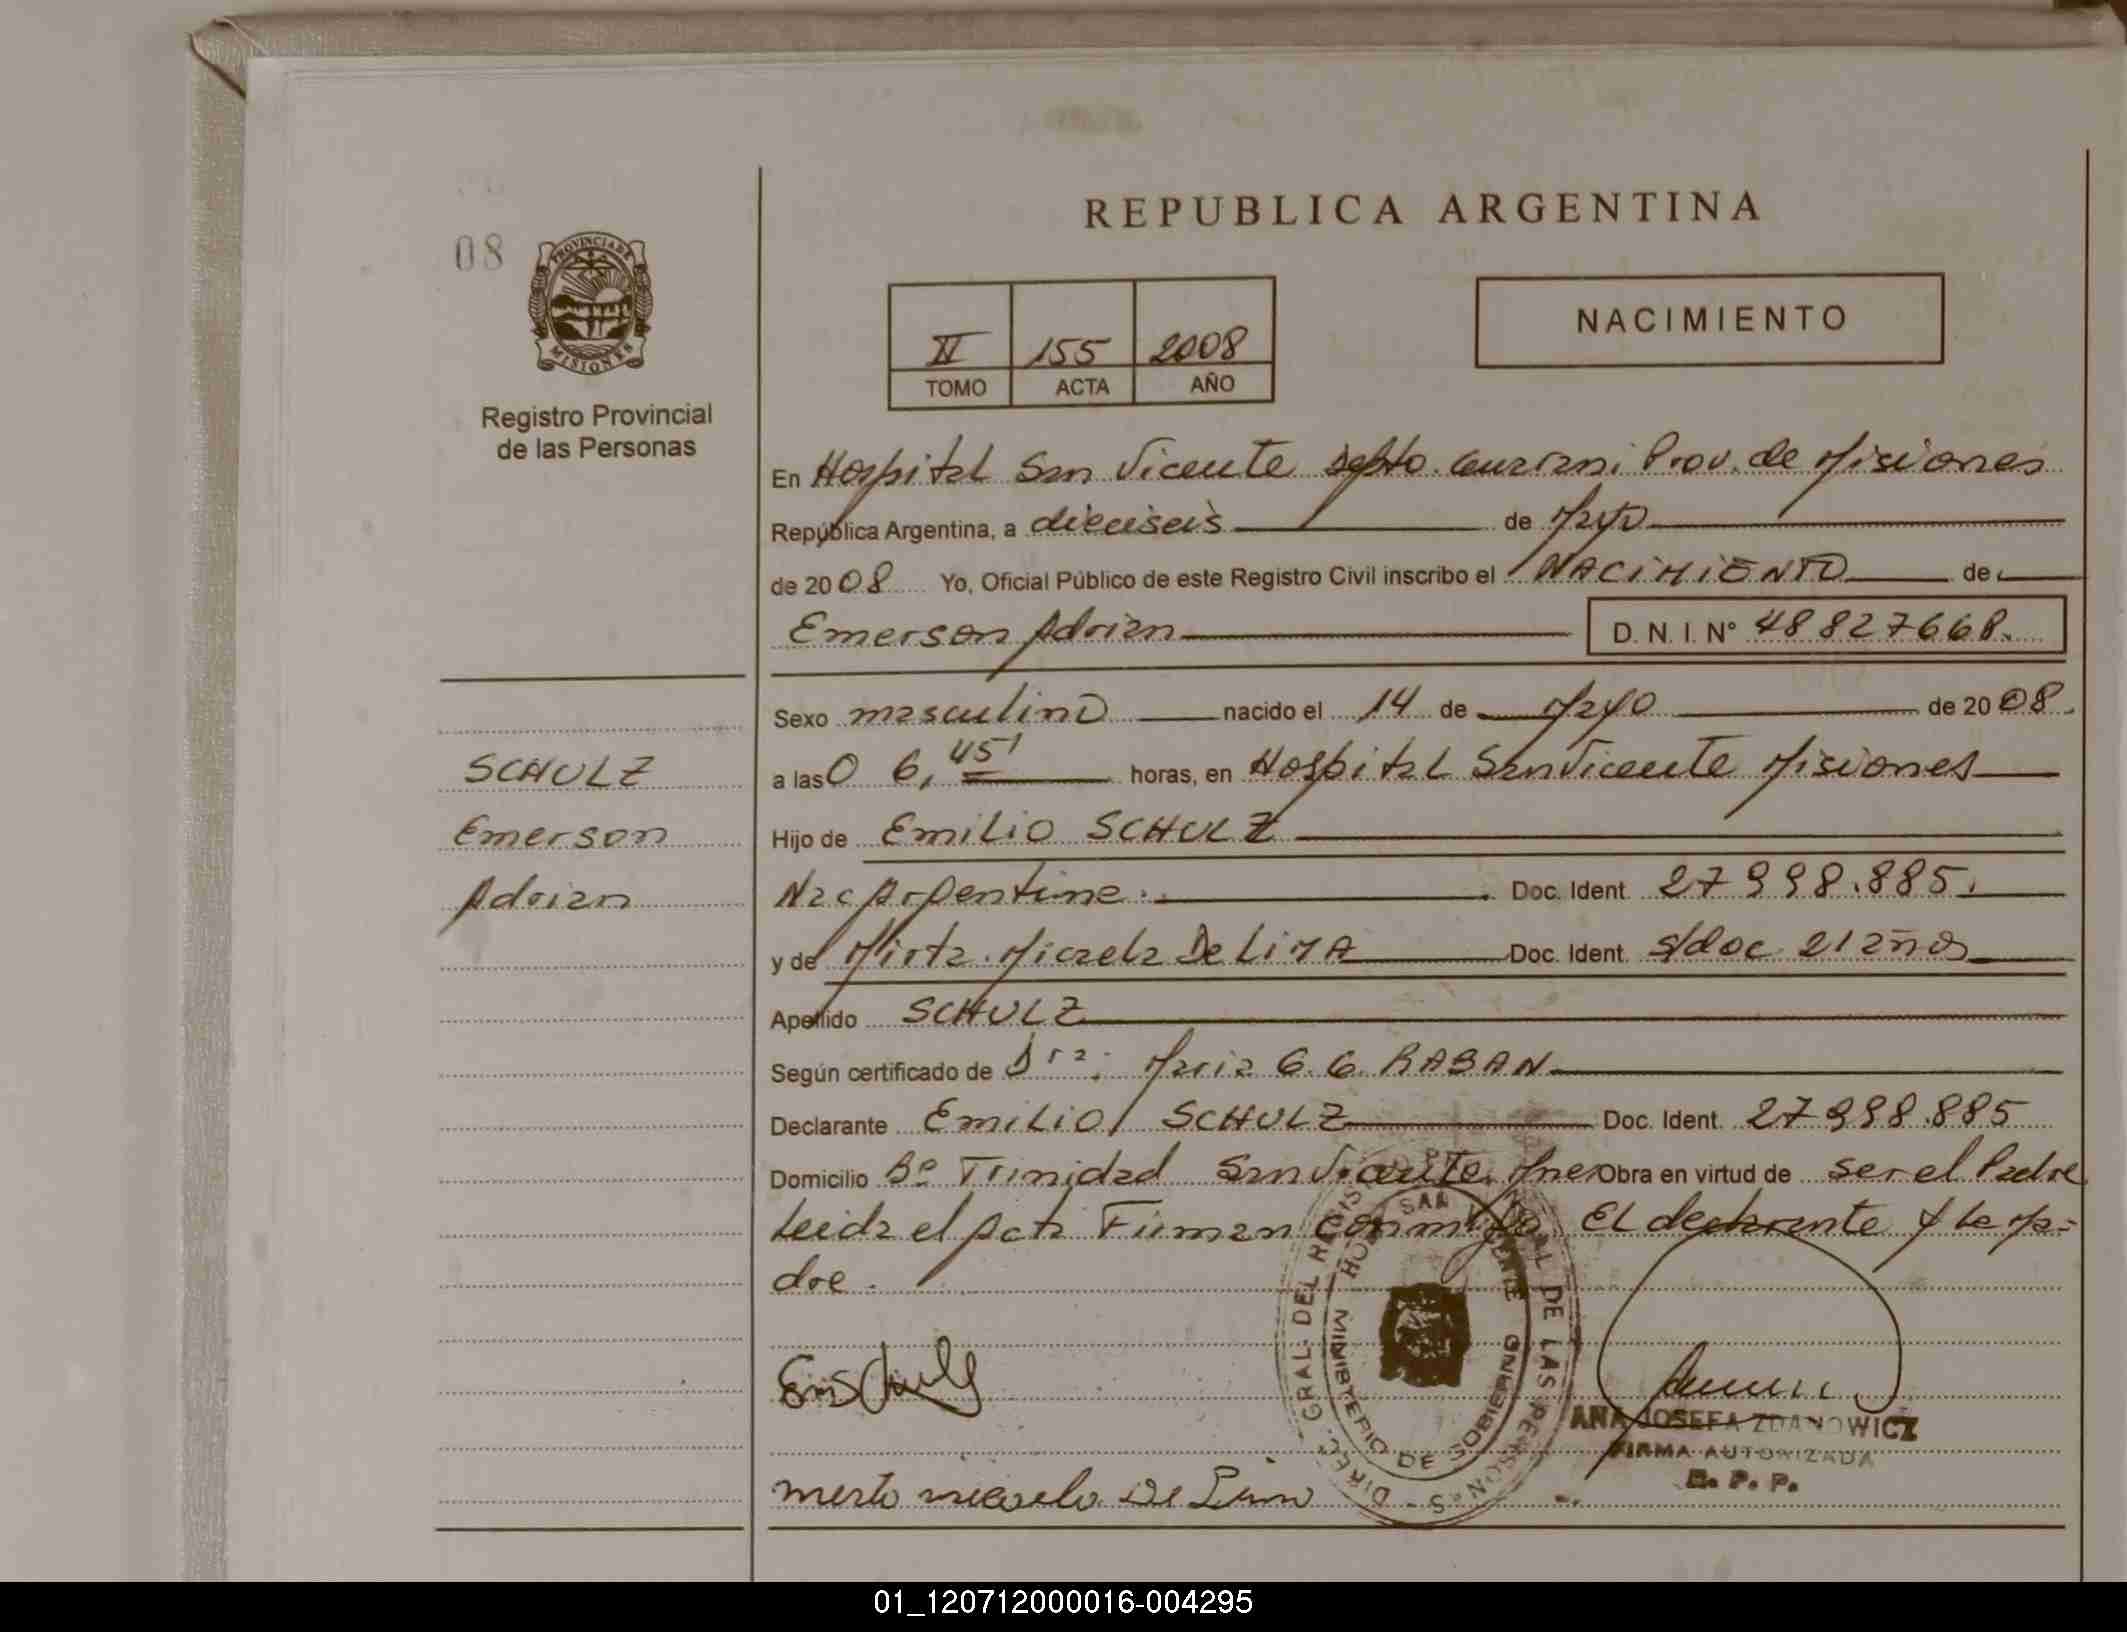 REPUBLICA ARGENTINA
08
PROVINCIA DE
MISIONES
Registro Provincial
de las Personas
II 155 2008
TOMO ACTA AÑO
NACIMIENTO
En Hospital San Vicente Depto. Guarani Prov. de Misiones
República Argentina, a dieciseis de Mayo
de 2008 Yo, Oficial Público de este Registro Civil inscribo el NACIMIENTO de
Emerson Adrian D. N. I. N° 48827668.
Sexo masculino nacido el 14 de Mayo de 2008.
a las 0 6, 45' horas, en Hospital San Vicente Misiones
Hijo de Emilio SCHULZ
Nac Argentina. Doc. Ident. 27998.885.
y de Mirta Micaela De LIMA Doc. Ident. s/doc 21 años
Apellido SCHULZ
Según certificado de Dra: Maria G. G. RABAN
Declarante Emilio SCHULZ Doc. Ident. 27998.885
Domicilio B° Trinidad San Vicente. Mnes Obra en virtud de ser el Padre
Leida el Acta Firman conmigo El declarante y la Ma=
dre.
SCHULZ
Emerson
Adrian
DIREC. GRAL. DEL REGIS PROVINCIAL DE LAS PERSONAS
HOSP. SAN VICENTE
MINISTERIO DE GOBIERNO
ANA JOSEFA ZDANOWICZ
FIRMA AUTORIZADA
R. P. P.
mirta micaela De Lima
01_120712000016-004295